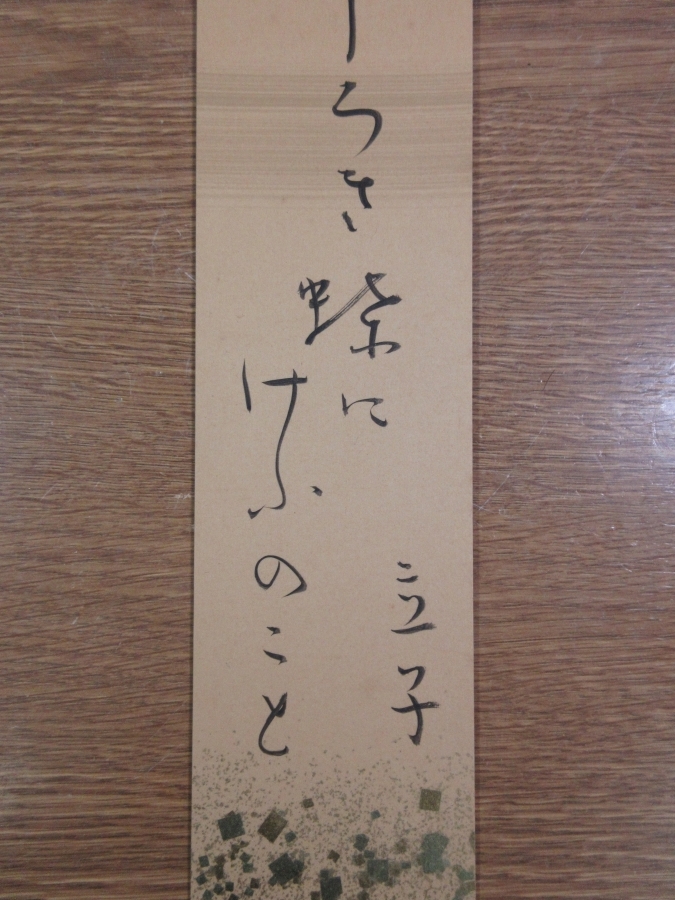 しろき蝶に
けふのこと
立子